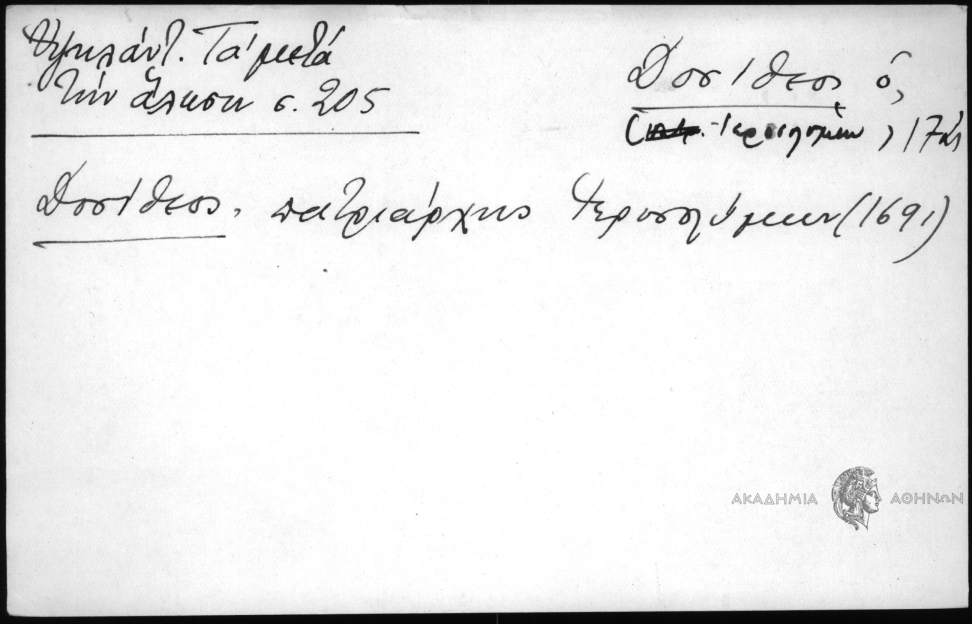 Ὑψηλάντ. Τά μετά
τήν ἅλωσιν σ. 205
Δοσίθεος ὁ,
(πατρ. Ἱεροσολύμων, 17ος
Δοσίθεος, πατριάρχης Ἱεροσολύμων (1691)
ΑΚΑΔΗΜΙΑ ΑΘΗΝΩΝ